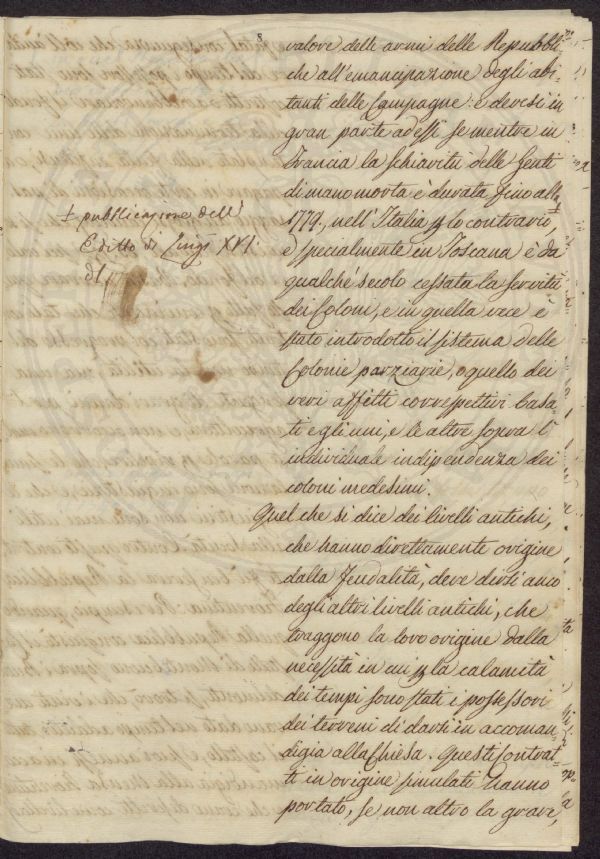 8
valore delle armi delle Repubbli-
che all'emancipazione degli abi-
tanti delle Campagne: e devesi in
gran parte ad essi se mentre in
Francia la schiavitù delle Genti
di mano morta è durata fino alla
1779., nell'Italia p lo contrario,
e specialmente in Toscana è da
qualche secolo cessata la servitù
dei Coloni, e in quella vece è
stato introdotto il sistema delle
Colonie parziarie, o quello dei
veri affitti correspettivi basa-
ti e gli uni, e le altre sopra l'
individuale indipendenza dei
coloni medesimi.
Quel che si dice dei livelli antichi,
che hanno direttamente origine
dalla Feudalità, deve dirsi anco
degli altri livelli antichi, che
traggono la loro origine dalla
necessità in cui p la calamità
dei tempi sono stati i possessori
dei terreni di darsi in accoman-
digia alla Chiesa. Questi Contrat-
ti in origine simulati hanno
portato, se non altro la grave,
± pubblicazione dell'
Editto di Luigi XVI.